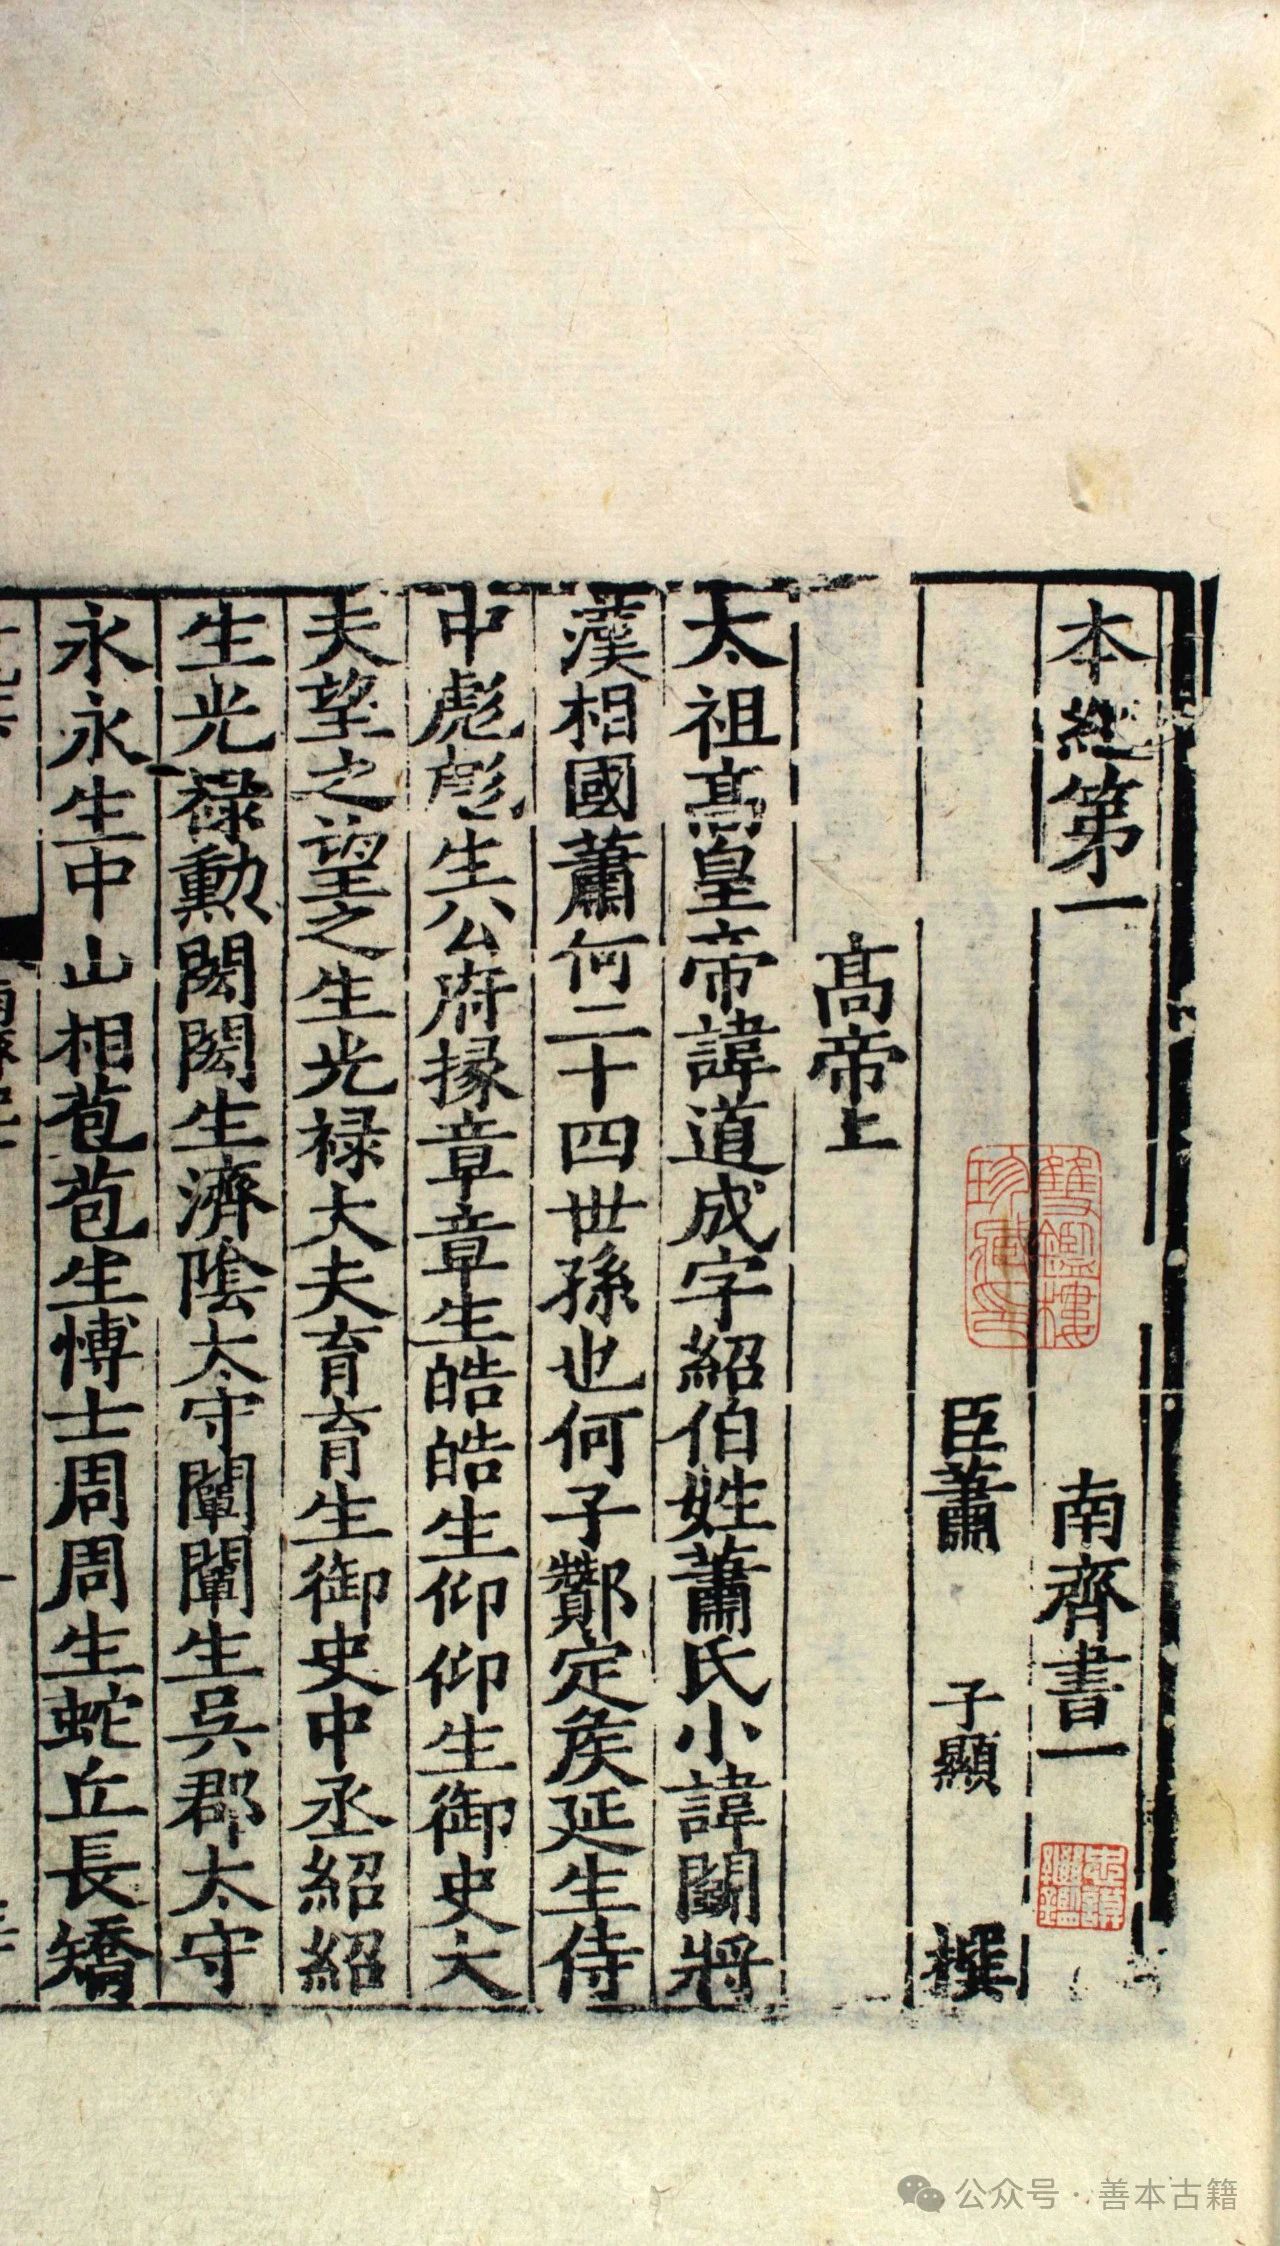 本紀第一 南齊書一
臣蕭 子顯 撰
高帝上
太祖高皇帝諱道成字紹伯姓蕭氏小諱鬬將
漢相國蕭何二十四世孫也何子酇定侯延生侍
中彪彪生公府掾章章生皓皓生仰仰生御史大
夫望之望之生光禄大夫育育生御史中丞紹紹
生光禄勳閎閎生濟陰太守闡闡生吳郡太守
永永生中山相苞苞生博士周周生蛇丘長矯
雙鑑樓
珍藏印
公众号·善本古籍